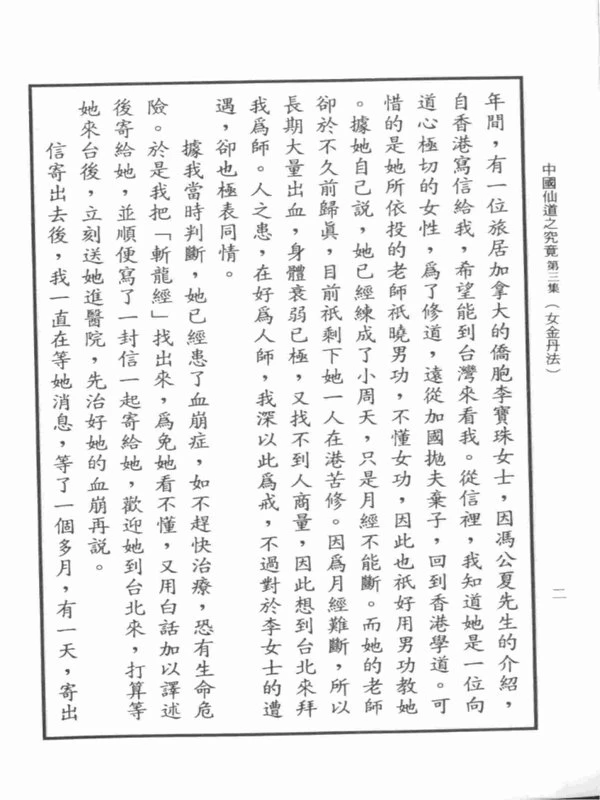 中國仙道之究竟 第三集（女金丹法）
二
年間，有一位旅居加拿大的僑胞李寶珠女士，因馮公夏先生的介紹，
自香港寫信給我，希望能到台灣來看我。從信裡，我知道她是一位向
道心極切的女性，爲了修道，遠從加國拋夫棄子，回到香港學道。可
惜的是她所依投的老師祇曉男功，不懂女功，因此也祇好用男功教她
。據她自己說，她已經練成了小周天，只是月經不能斷。而她的老師
卻於不久前歸眞，目前祇剩下她一人在港苦修。因爲月經難斷，所以
長期大量出血，身體衰弱已極，又找不到人商量，因此想到台北來拜
我爲師。人之患，在好爲人師，我深以此爲戒，不過對於李女士的遭
遇，卻也極表同情。
據我當時判斷，她已經患了血崩症，如不趕快治療，恐有生命危
險。於是我把「斬龍經」找出來，爲免她看不懂，又用白話加以譯述
後寄給她，並順便寫了一封信一起寄給她，歡迎她到台北來，打算等
她來台後，立刻送她進醫院，先治好她的血崩再說。
信寄出去後，我一直在等她消息，等了一個多月，有一天，寄出